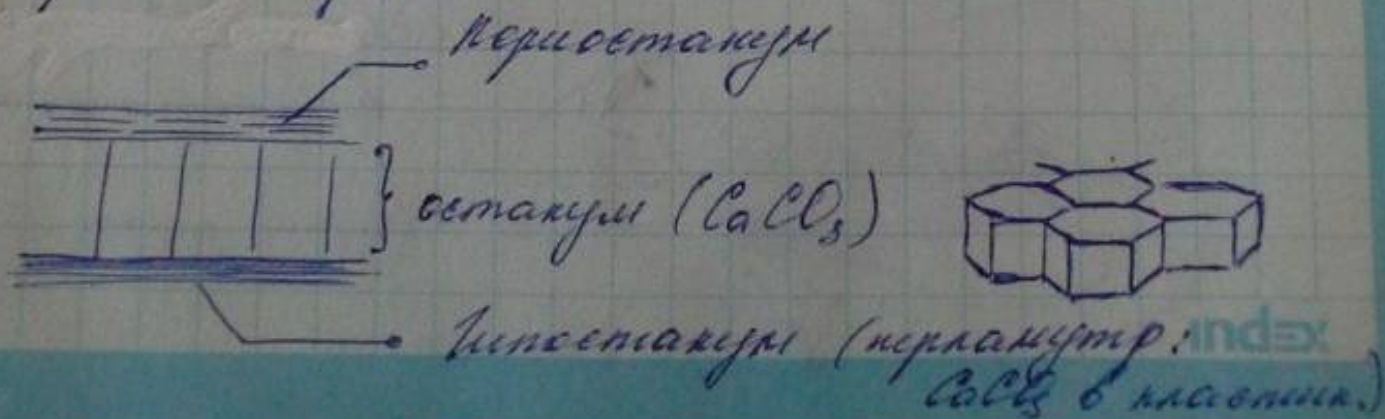 Периостакум
остакум (CaCO₃)
Гипостакум (перламутр: index
CaCO₃ в пластин.)